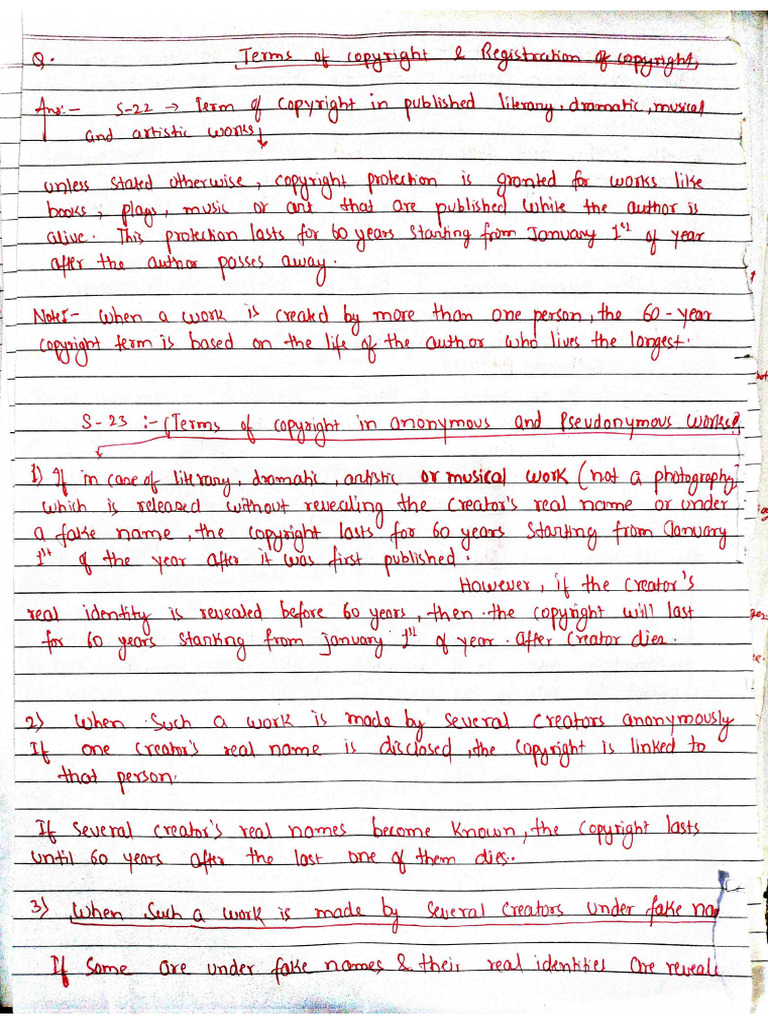 Q. Terms of copyright & Registration of copyright.
Ans:- S-22 → Term of copyright in published literary, dramatic, musical
and artistic works
unless stated otherwise, copyright protection is granted for works like
books, plays, music or art that are published while the author is
alive. This protection lasts for 60 years starting from January 1st of year
after the author passes away.
Note:- When a work is created by more than one person, the 60-year
copyright term is based on the life of the author who lives the longest.
S-23 :- (Terms of copyright in anonymous and Pseudonymous works)
1) If in case of literary, dramatic, artistic or musical work (not a photography)
which is released without revealing the creator's real name or under
a fake name, the copyright lasts for 60 years starting from January
1st of the year after it was first published.
However, if the creator's
real identity is revealed before 60 years, then the copyright will last
for 60 years starting from january 1st of year after creator dies.
2) When such a work is made by several creators anonymously
If one creator's real name is disclosed, the copyright is linked to
that person.
If several creator's real names become known, the copyright lasts
until 60 years after the last one of them dies.
3) When such a work is made by several creators under fake na
If some are under fake names & their real identities are reveale